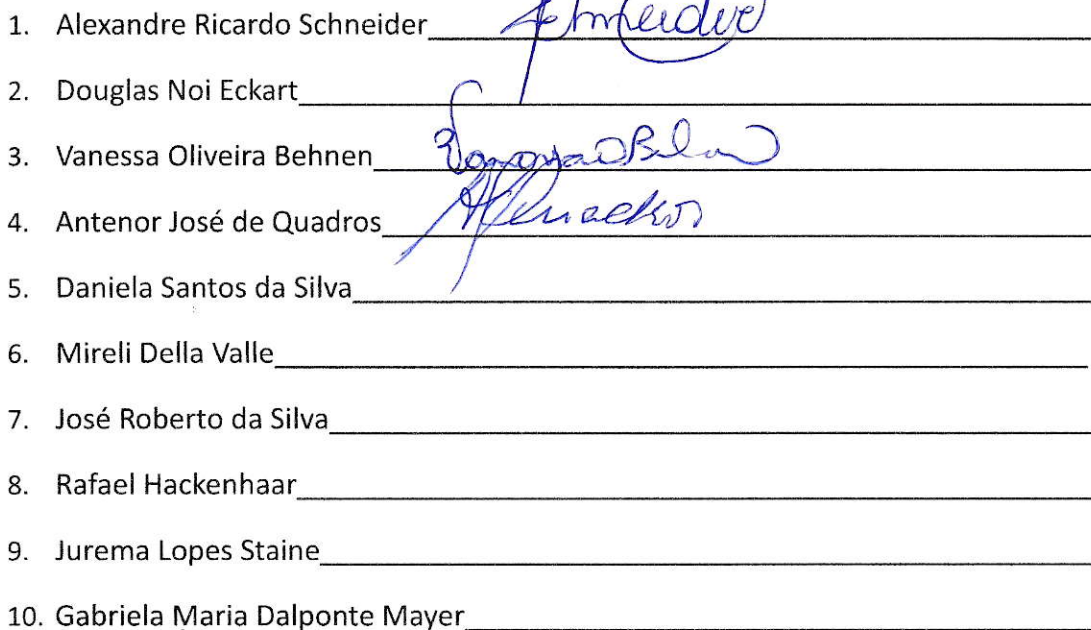 1. Alexandre Ricardo Schneider
2. Douglas Noi Eckart
3. Vanessa Oliveira Behnen
4. Antenor José de Quadros
5. Daniela Santos da Silva
6. Mireli Della Valle
7. José Roberto da Silva
8. Rafael Hackenhaar
9. Jurema Lopes Staine
10. Gabriela Maria Dalponte Mayer